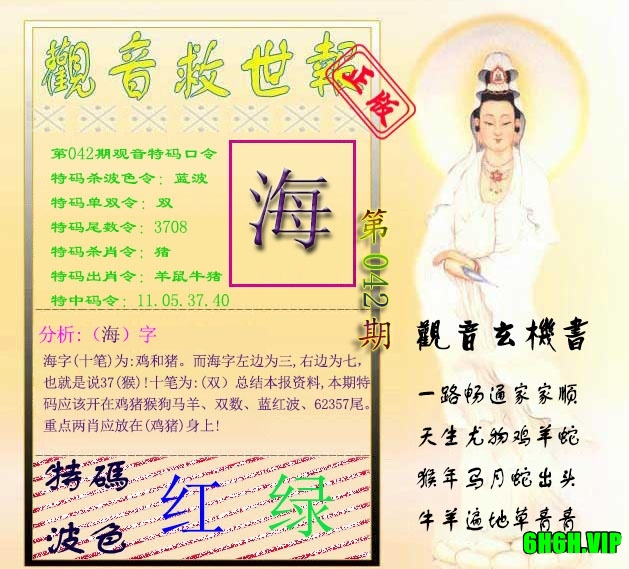 觀音救世報
正版
第042期观音特码口令
特码杀波色令：蓝波
特码单双令：双
特码尾数令：3708
特码杀肖令：猪
特码出肖令：羊鼠牛猪
特中码令：11.05.37.40
海
第042期
分析:（海）字
海字(十笔)为:鸡和猪。而海字左边为三,右边为七,
也就是说37(猴)!十笔为:(双）总结本报资料,本期特
码应该开在鸡猪猴狗马羊、双数、蓝红波、62357尾。
重点两肖应放在(鸡猪)身上!
特碼
波色
红 绿
觀音玄機書
一路畅通家家顺
天生尤物鸡羊蛇
猴年马月蛇出头
牛羊遍地草青青
6H6H.VIP